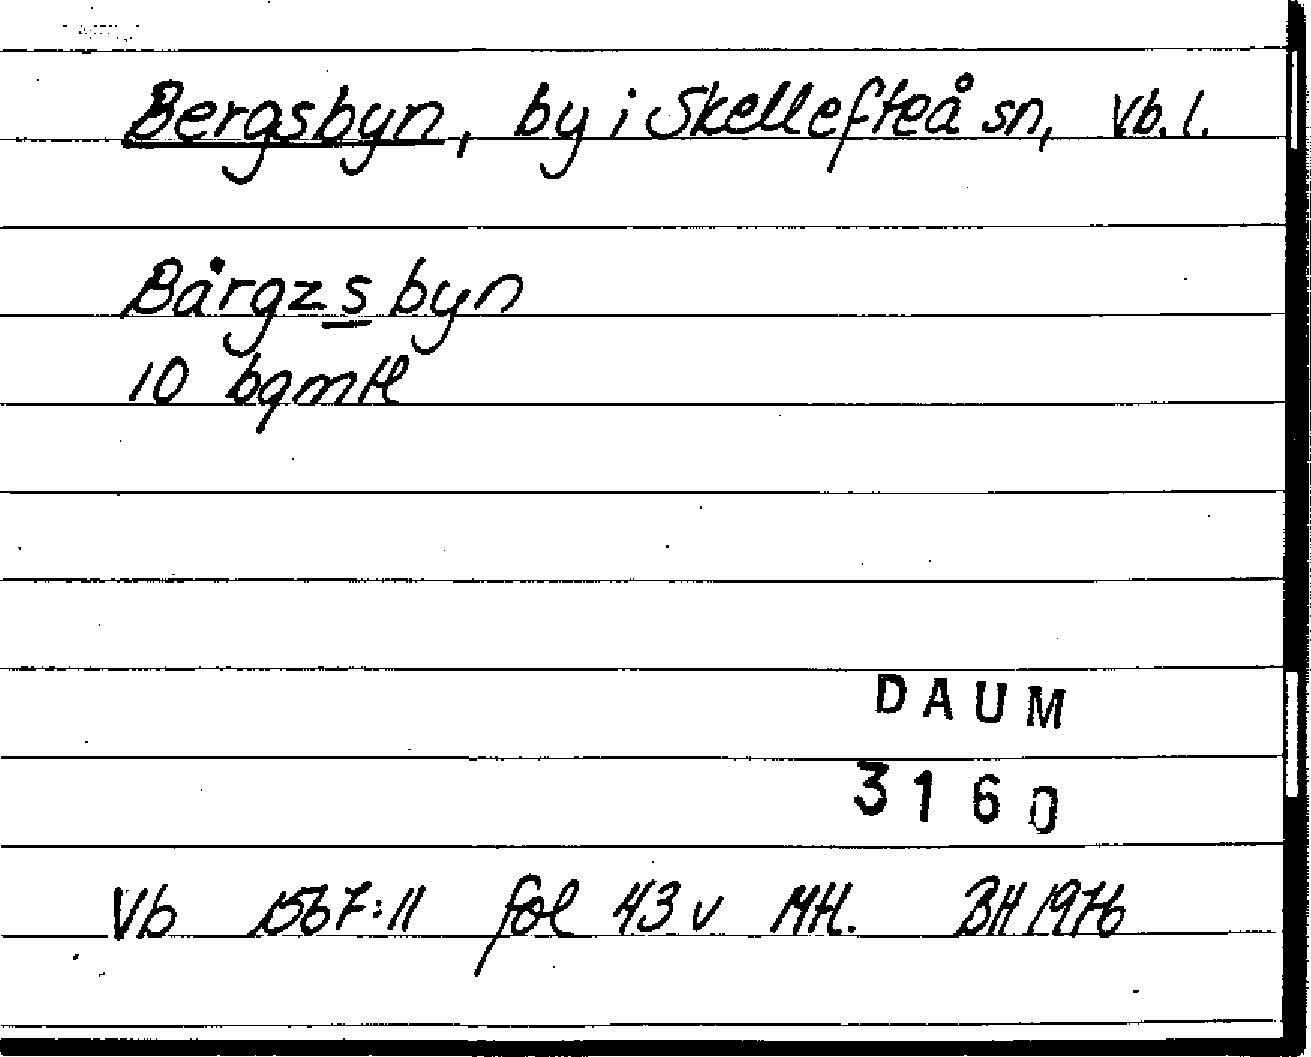 Bergsbyn, by i Skellefteå sn, Vb. l.
Bårgzsbyn
10 bqmtl
DAUM
3160
Vb 1567:11 fol 43 v Mtl. BH 1976